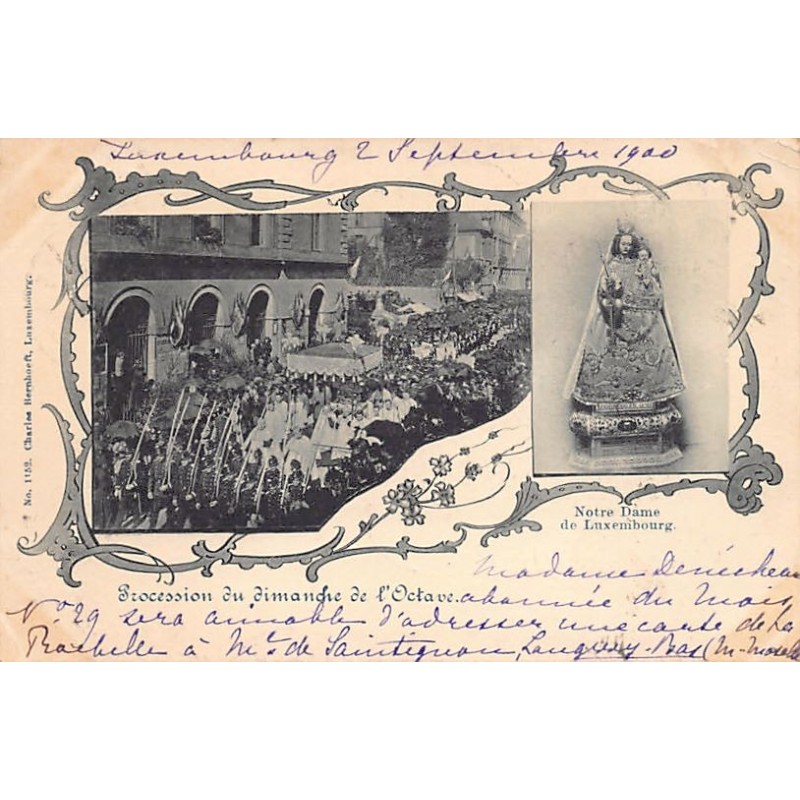 Luxembourg 2 Septembre 1900
No. 1152. Charles Bernhoeft, Luxembourg.
Notre Dame
de Luxembourg.
Procession du dimanche de l'Octave.
Madame
abonnée du Mois
No 29 sera aimable d'adresser une carte de La
Rochelle à Mme de Saintignon, Longwy-Bas (M-Moselle